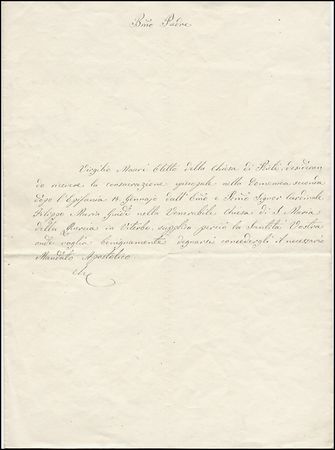 Bmo Padre
Virgilio Mauri Eletto della Chiesa di Forlì, desideran
do ricevere la consacrazione episcopale nella Domenica seconda
dopo l'Epifania Gennajo dall' Emo e Rmo Signor Cardinale
Filippo Maria Guidi nella Venerabile Chiesa di S. Maria
della Quercia in Viterbo, supplica perciò la Santità Vostra
onde voglia benignamente degnarsi concedergli il necessario
Mandato Apostolico.
Che